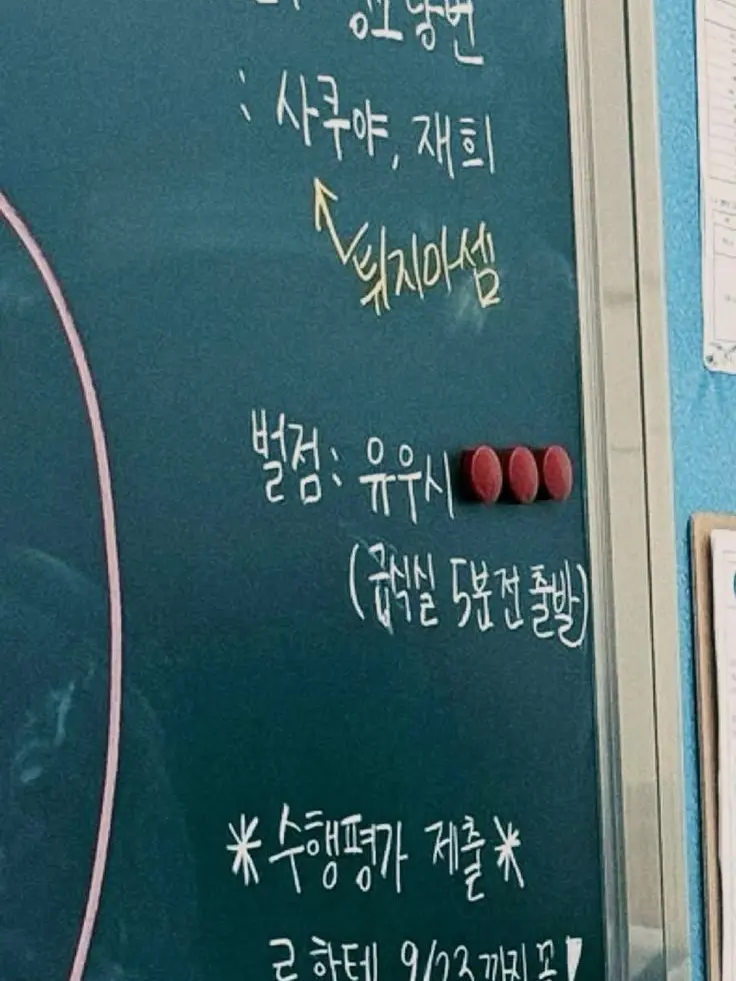 당번
: 사쿠야, 재희
튀지마셈
벌점: 유우시
(급식실 5분전 출발)
*수행평가 제출*
한테 9/23까지 꼭!